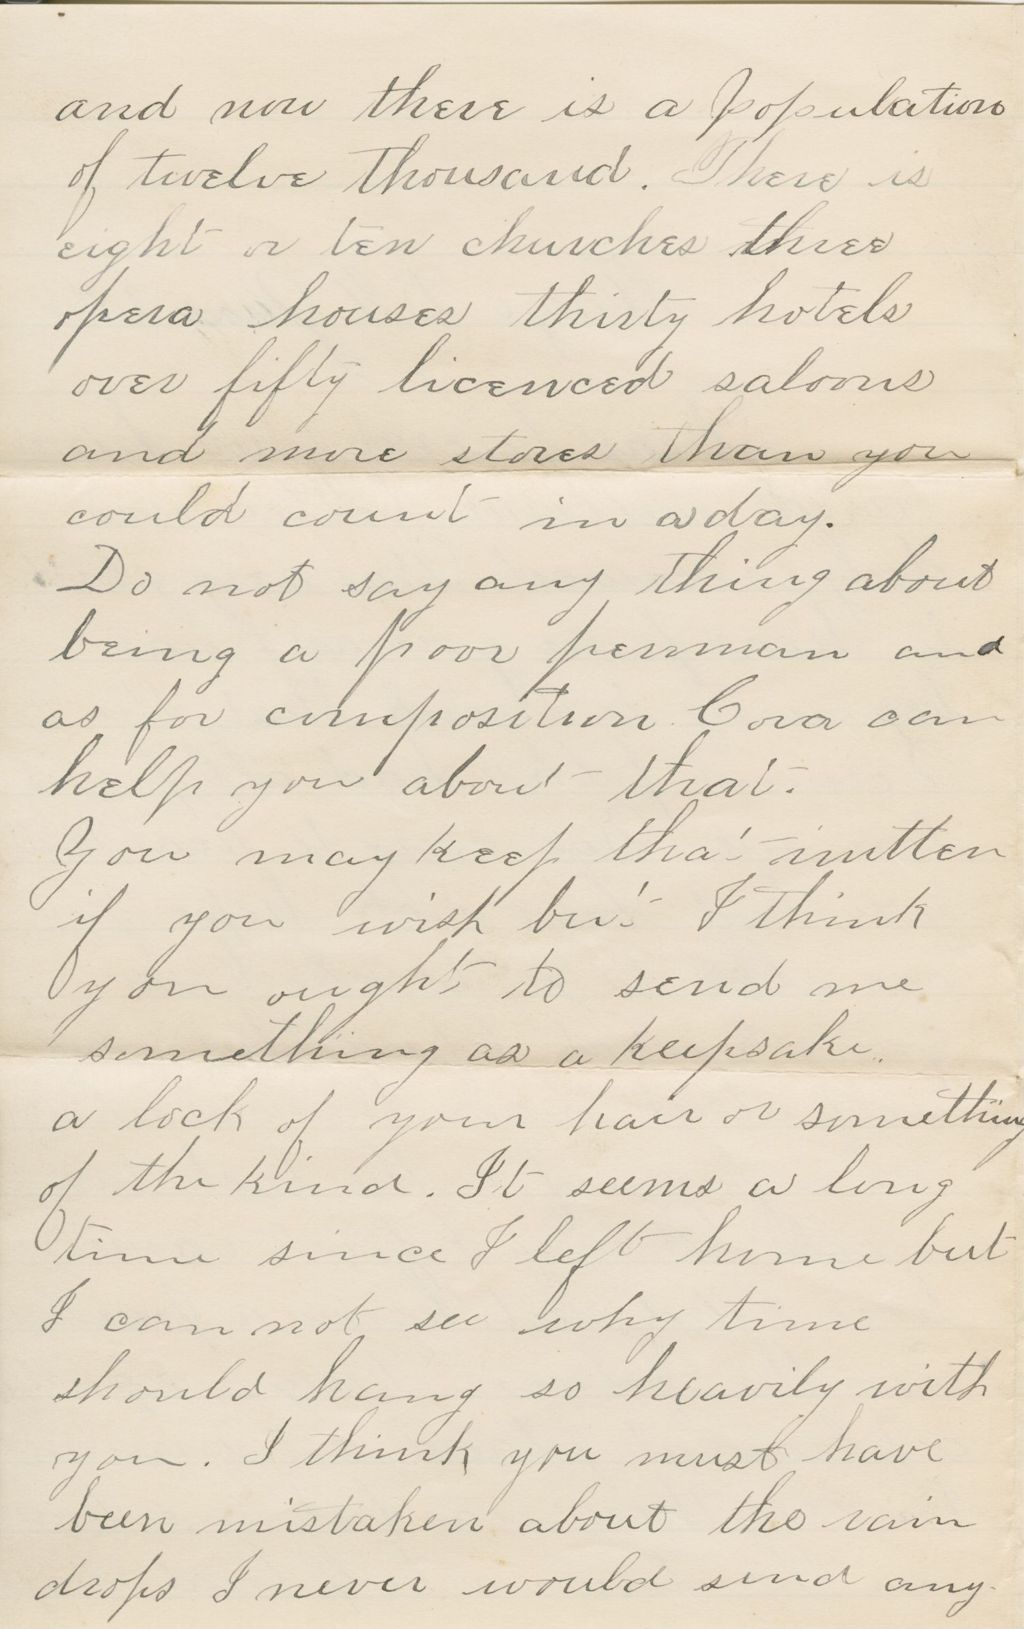 and now there is a Population
of twelve thousand. There is
eight or ten churches three
opera houses thirty hotels
over fifty licenced saloons
and more stores than you
could count in a day.
Do not say any thing about
being a poor penman and
as for composition Cora can
help you about that.
You may keep that mitten
if you wish but I think
you ought to send me
something as a keepsake.
a lock of your hair or something
of the kind. It seems a long
time since I left home but
I can not see why time
should hang so heavily with
you. I think you must have
been mistaken about the rain
drops I never would send any